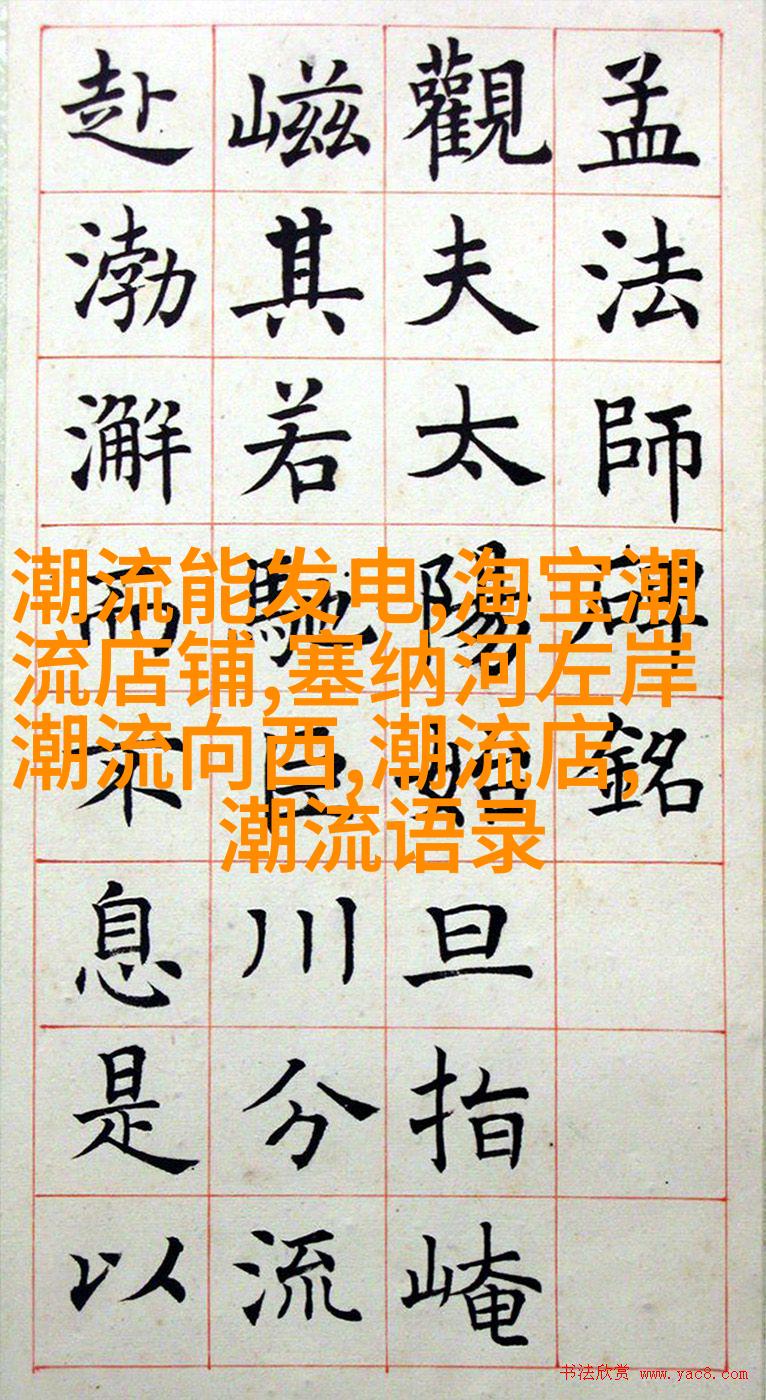 孟法師碑銘
觀夫太陽始旦指崦
嵫其若馳巨川分流
赴渤澥而不息是以
潮流能发电,淘宝潮
流店铺,塞纳河左岸
潮流向西,潮流店,
潮流语录
书法欣赏 www.yac8.com